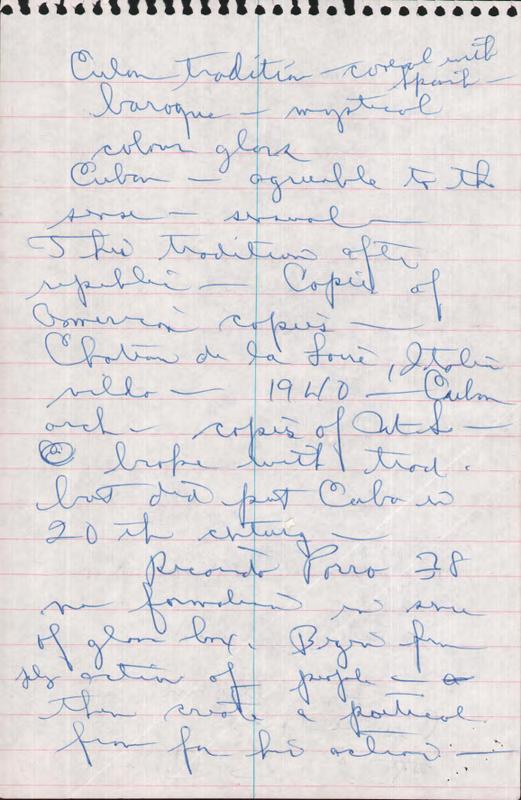 Cuban tradition — with
Spanish —
baroque — mystical
colour glass
Cuban — agreeable to the
sense — sensual —
This tradition after
republic — Copies of
American copies —
Chateau de la Loire, Italian
villa — 1940 — Cuban
arch — copies of —
broke with trad.
but did put Cuba in
20th century —
Ricardo Porro 38
no formalism in sense
of glass box. Begin from
action of people —
then create a poetical
from for his action —